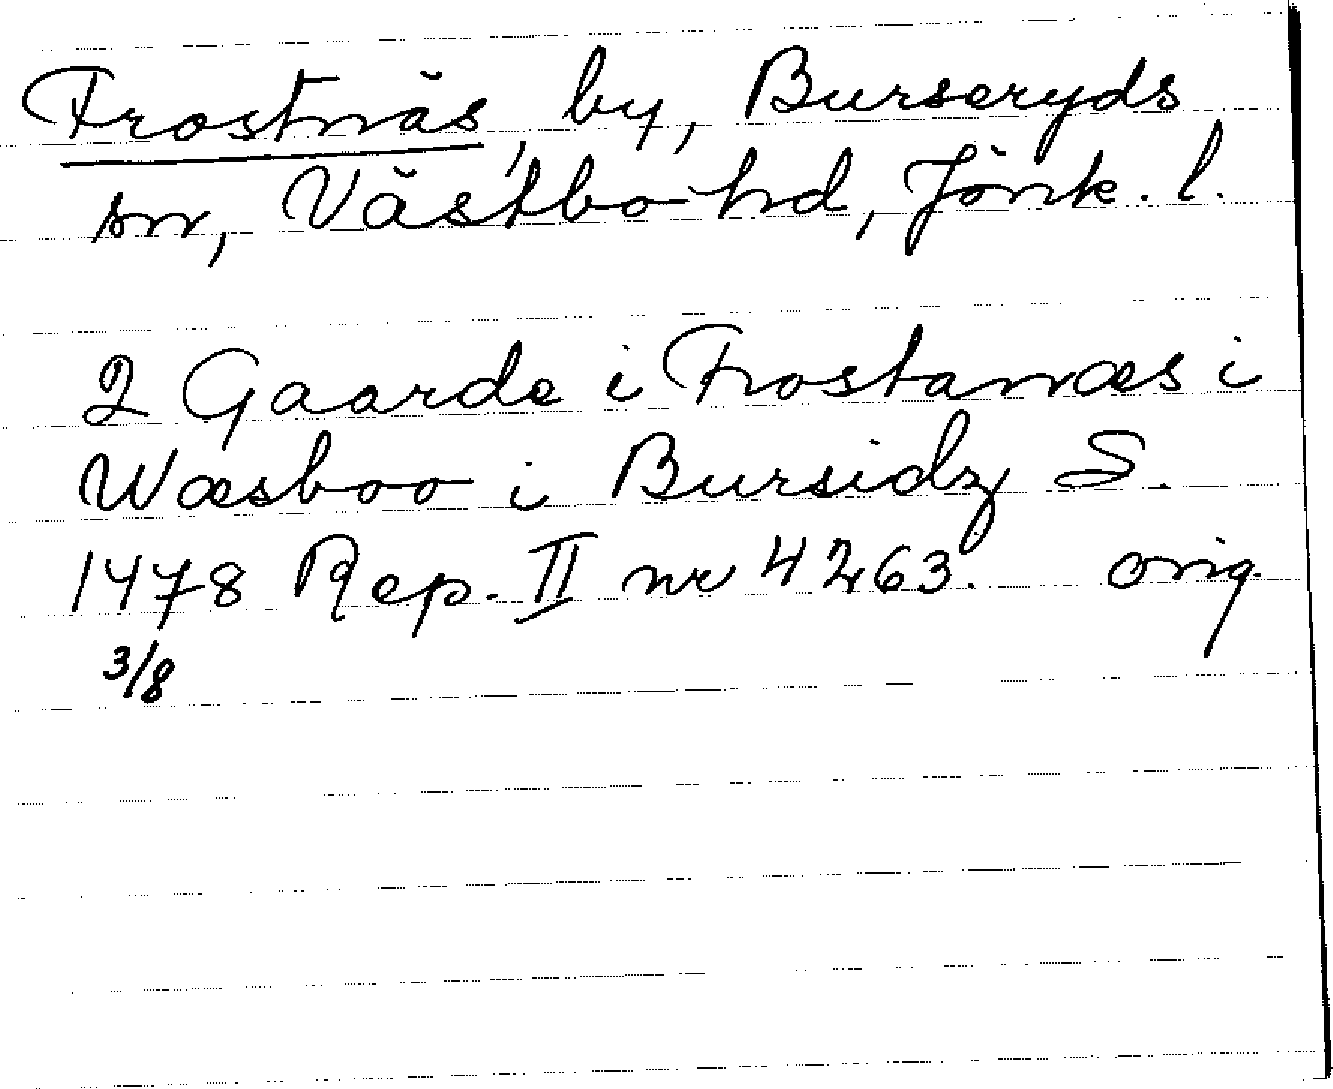 Frostnäs, by, Burseryds
sn, Västbo hd, Jönk. l.
2 Gaarde i Frostanæs i
Wæsboo i Bursidz S.
1478 Rep. II nr 4263. orig.
3/8